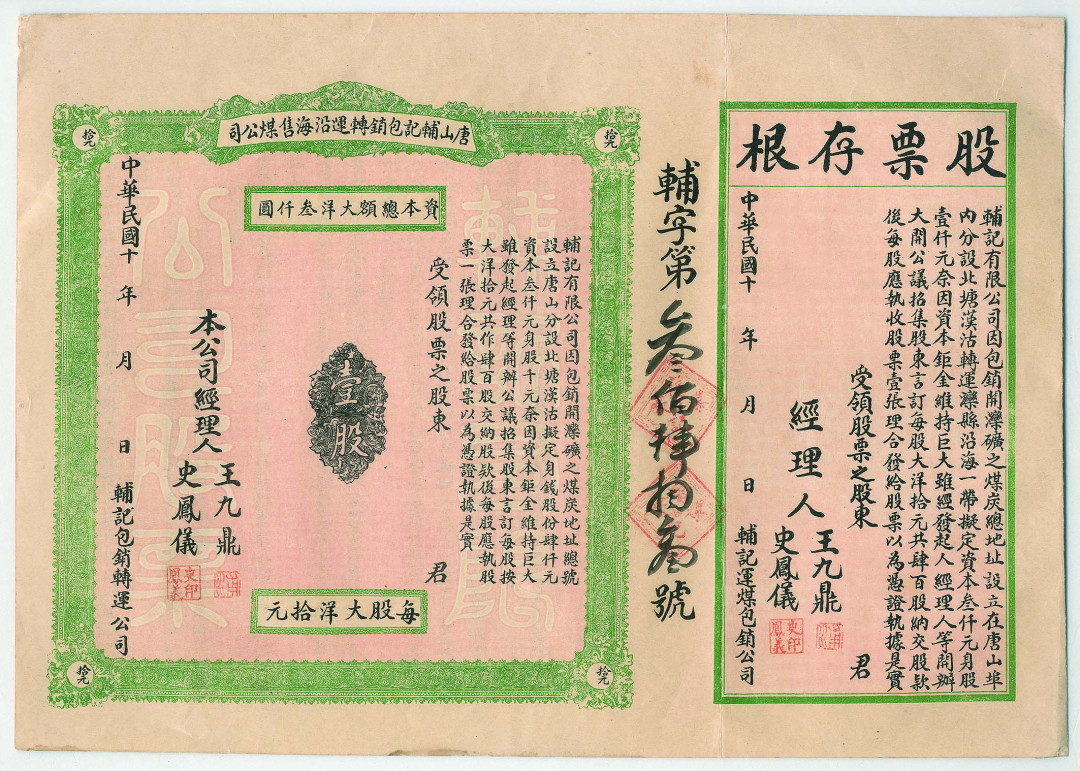 股票存根
輔記有限公司因包銷開灤礦之煤炭總地址設立在唐山埠
內分設北塘漢沽轉運灤縣沿海一帶擬定資本叁仟元身股
壹仟元奈因資本鉅金維持巨大雖經發起人經理人等開辦
大開公議招集股東言訂每股大洋拾元共作肆百股納交股款
後每股應執收股票壹張理合發給股票以為憑證執據是實
受領股票之股東 君
經理人 王九鼎
史鳳儀
史印鳳義
中華民國十 年 月 日 輔記運煤包銷公司
輔字第叁佰陸拾叁號
唐山輔記包銷轉運沿海售煤公司
拾元
拾元
拾元
拾元
資本總額大洋叁仟圓
輔記有限公司因包銷開灤礦之煤炭地址總號
設立唐山分設北塘漢沽擬定身錢股份肆仟元
資本叁仟元身股千元奈因資本鉅金維持巨大
雖發起經理等開辦公議招集股東言訂每股按
大洋拾元共作肆百股交納股款後每股應執股
票一張理合發給股票以為憑證執據是實
受領股票之股東 君
壹股
本公司經理人 王九鼎
史鳳儀
史印鳳義
中華民國十 年 月 日 輔記包銷轉運公司
每股大洋拾元